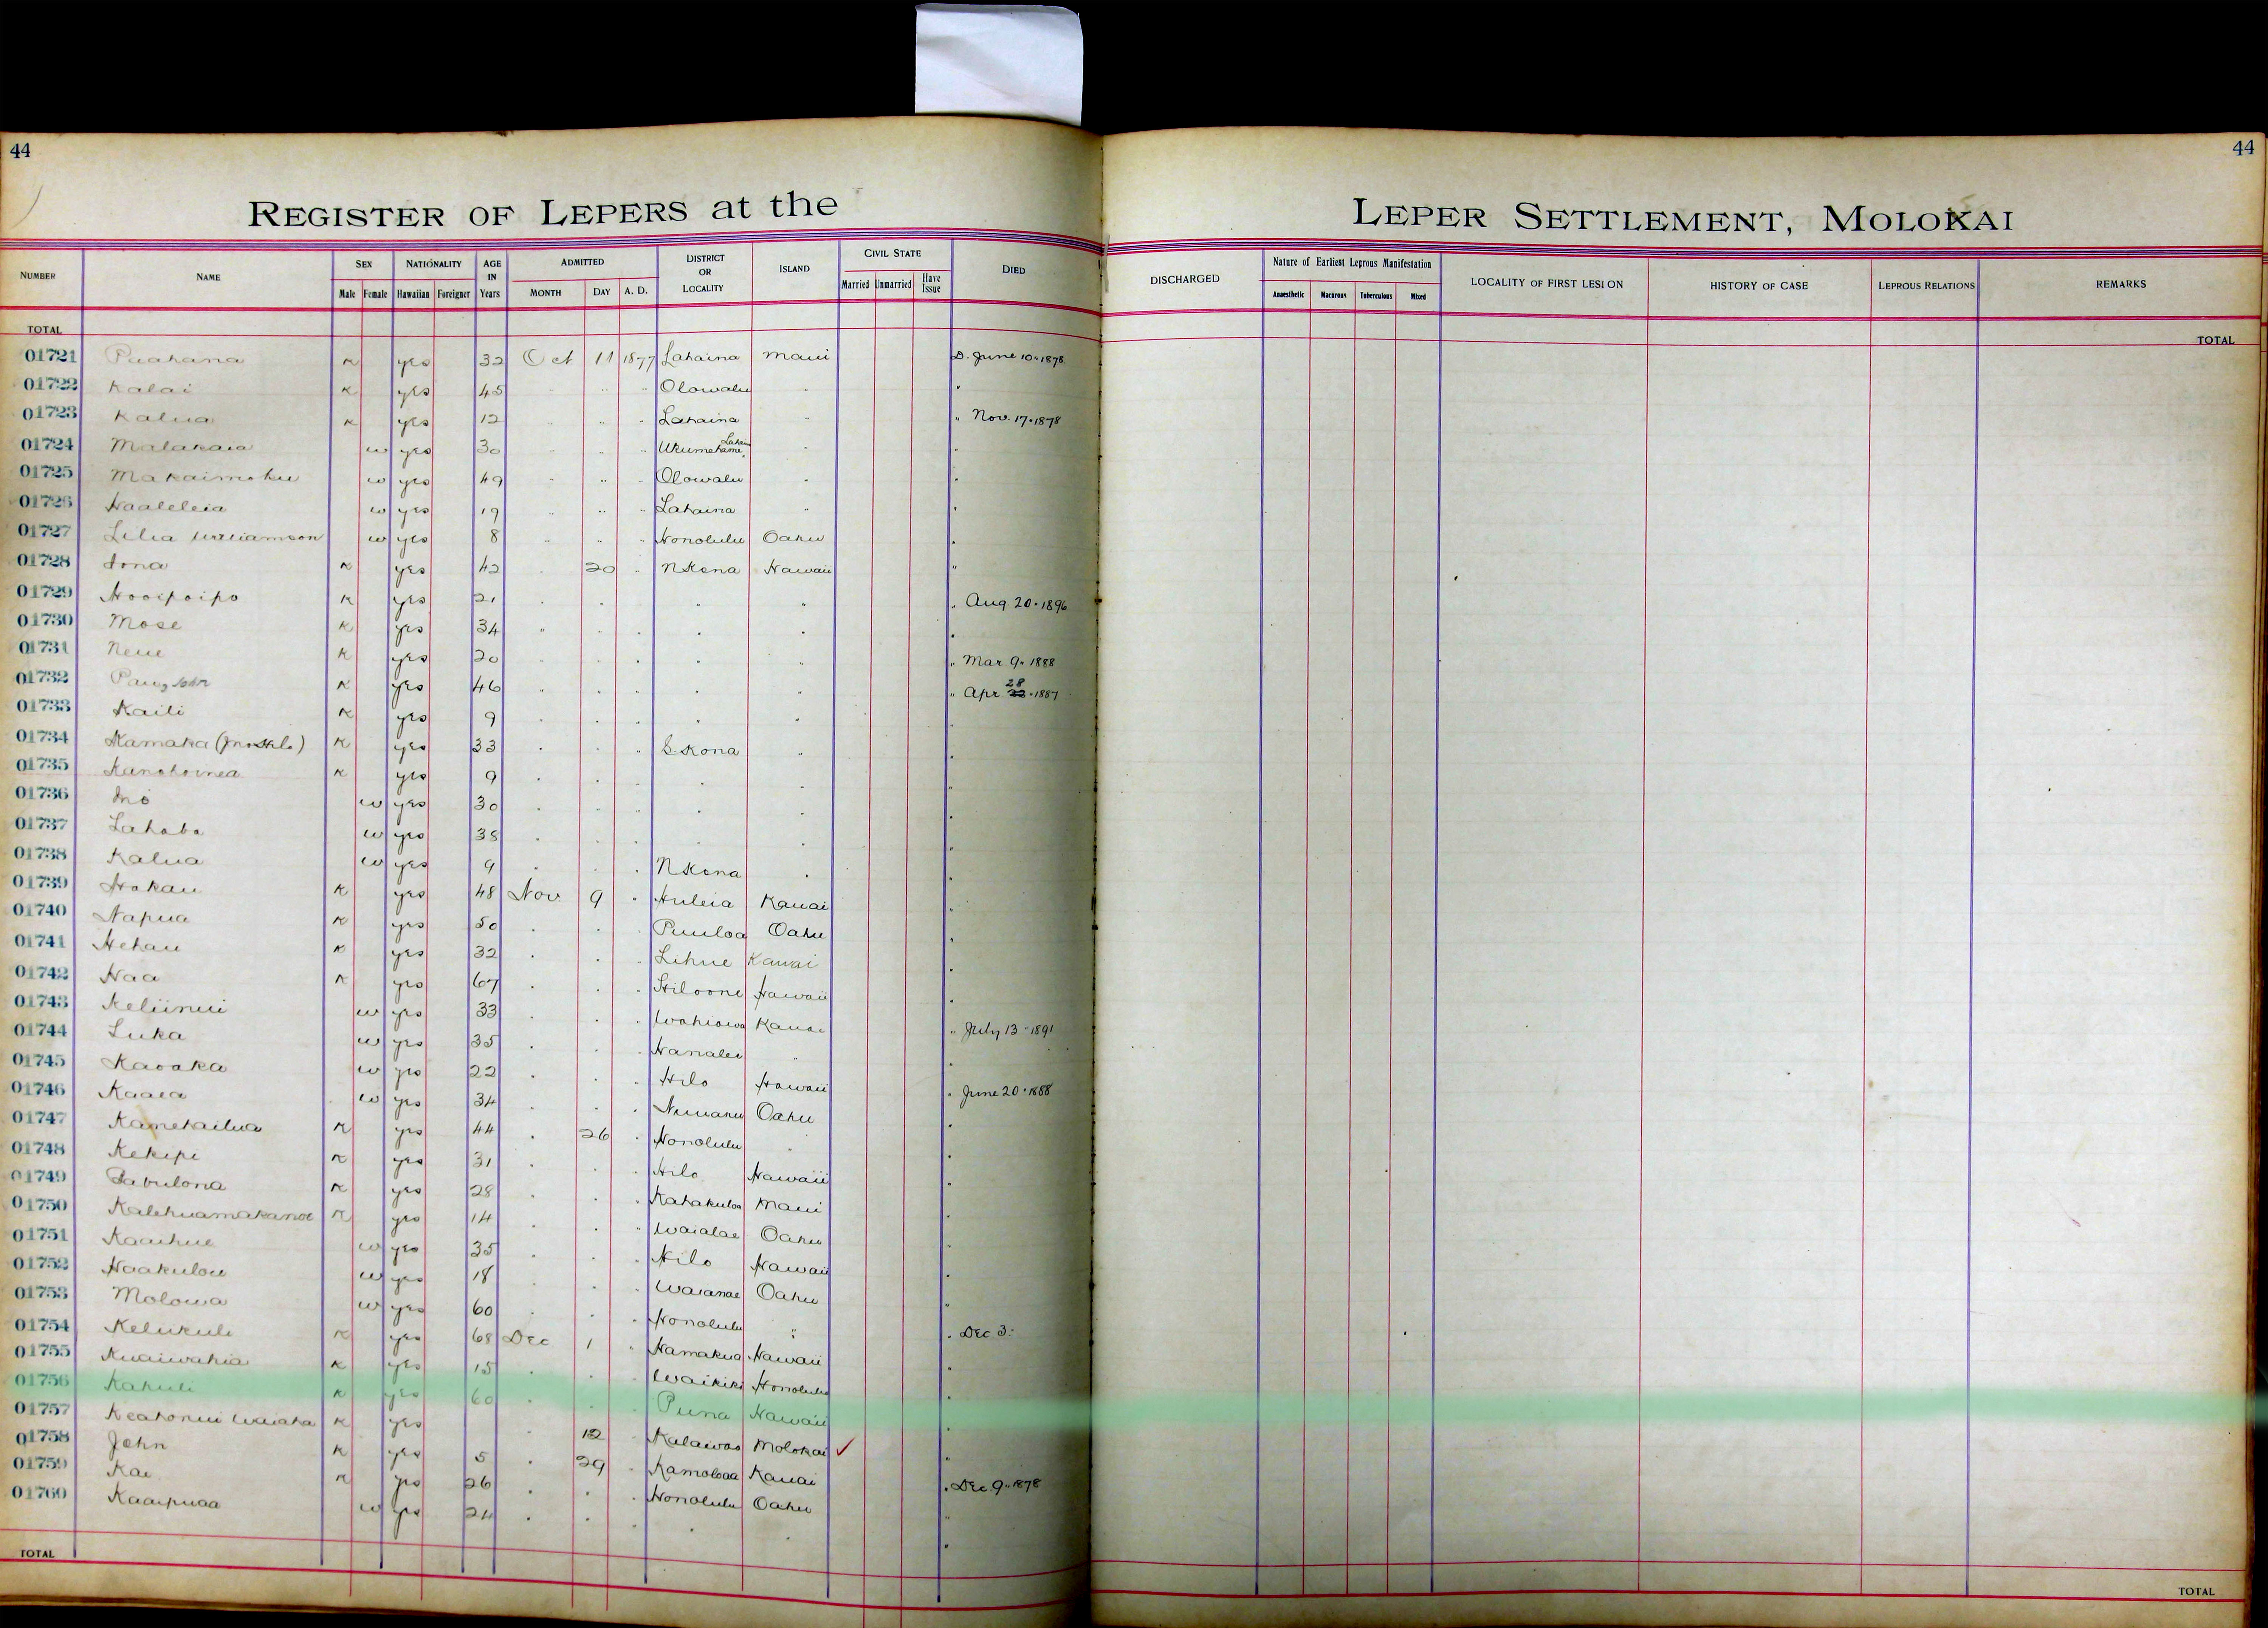 44
44
REGISTER OF LEPERS at the LEPER SETTLEMENT, MOLOKAI
NUMBER NAME SEX NATIONALITY AGE IN Years ADMITTED DISTRICT OR LOCALITY ISLAND CIVIL STATE DIED DISCHARGED Nature of Earliest Leprous Manifestation LOCALITY OF FIRST LESION HISTORY OF CASE LEPROUS RELATIONS REMARKS
Male Female Hawaiian Foreigner MONTH DAY A. D. Married Unmarried Have Issue Anaesthetic Macurous Tuberculous Mixed
TOTAL TOTAL
01721 Puahana K yes 32 Oct 11 1877 Lahaina Maui D. June 10 " 1878
01722 Kalai K yes 45 " " " Olowalu " "
01723 Kalua K yes 12 " " " Lahaina " " Nov. 17 " 1878
01724 Malakaia w yes 30 " " " Ukumehame " "
01725 Makaimoku w yes 49 " " " Olowalu " "
01726 Haaleleia w yes 19 " " " Lahaina " "
01727 Lilia Williamson w yes 8 " " " Honolulu Oahu "
01728 Iona K yes 42 " 20 " N Kona Hawaii "
01729 Hooipoipo K yes 21 " " " " " Aug. 20 " 1896
01730 Mose K yes 34 " " " " " "
01731 Neue K yes 20 " " " " " " Mar. 9 " 1888
01732 John K yes 46 " " " " " " Apr 28 " 1887
01733 Kaili K yes 9 " " " " "
01734 Kamaka K yes 33 " " " S. Kona " "
01735 K yes 9 " " " " " "
01736 w yes 30 " " " " " "
01737 w yes 38 " " " " " "
01738 Kalua w yes 9 " " " N Kona " "
01739 Hokau K yes 48 Nov 9 " Huleia Kauai "
01740 Napua K yes 50 " " " Puuloa Oahu "
01741 Hehau K yes 32 " " " Lihue Kauai "
01742 Naa K yes 67 " " " Hiloone Hawaii "
01743 Keliinui w yes 33 " " " Wahiawa Kauai " July 13 " 1891
01744 Luka w yes 35 " " " Hanalei " "
01745 Kaoaka w yes 22 " " " Hilo Hawaii " June 20 " 1888
01746 Kaaia w yes 34 " " " Nuuanu Oahu "
01747 Kamehailua K yes 44 " 26 " Honolulu " "
01748 Kekipi K yes 31 " " " Hilo Hawaii "
01749 Zabulona K yes 28 " " " Kahakuloa Maui "
01750 Kalehuamakanoe K yes 14 " " " Waialae Oahu "
01751 Kaaihue w yes 35 " " " Hilo Hawaii "
01752 Haakulou w yes 18 " " " Waianae Oahu "
01753 Molowa w yes 60 " " " Honolulu " " Dec 3
01754 Kelikuli K yes 68 Dec 1 " Hamakua Hawaii "
01755 Kuaiwahia K yes 15 " " " Waikiki Honolulu "
01756 Kahuli K yes 60 " " " Puna Hawaii "
01757 Keahonui Waiaha K yes " 12 " Kalawao Molokai ✓ "
01758 John K yes 5 " 29 " Kamoloaa Kauai " Dec 9 " 1878
01759 Kai K yes 26 " " " Honolulu Oahu "
01760 Kaaipuaa w yes 24 " " " " " "
TOTAL TOTAL